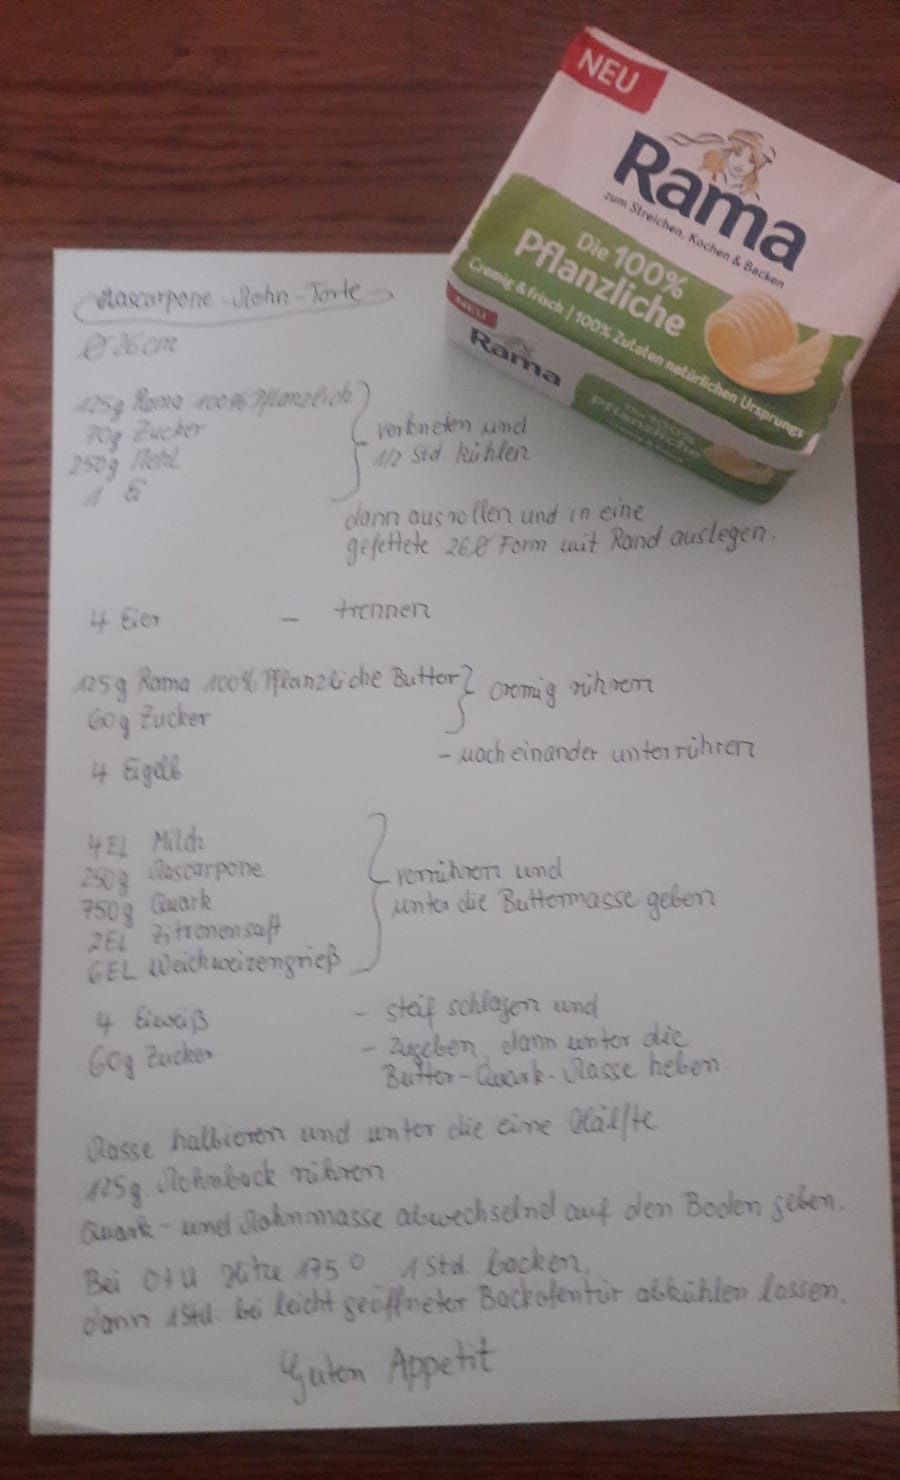 NEU
Rama
zum Streichen, Kochen & Backen
Die 100%
Pflanzliche
Cremig & frisch | 100% Zutaten natürlichen Ursprungs
NEU
Rama
Die 100%
Pflanzliche
Mascarpone-Mohn-Torte
Ø 26cm
125g Rama 100% Pflanzlich
70g Zucker
250g Mehl
1 Ei
verkneten und
1/2 Std kühlen
dann ausrollen und in eine
gefettete 26Ø Form mit Rand auslegen.
4 Eier – trennen
125g Rama 100% Pflanzliche Butter
60g Zucker
cremig rühren
4 Eigelb
- nacheinander unterrühren
4EL Milch
250g Mascarpone
750g Quark
2EL Zitronensaft
6EL Weichweizengrieß
verrühren und
unter die Buttermasse geben
4 Eiweiß – steif schlagen und
60g Zucker – zugeben, dann unter die
Butter-Quark-Masse heben.
Masse halbieren und unter die eine Hälfte
125g Mohnback rühren.
Quark- und Mohnmasse abwechselnd auf den Boden geben.
Bei O+U Hitze 175° 1 Std. backen,
dann 1Std. bei leicht geöffneter Backofentür abkühlen lassen.
Guten Appetit